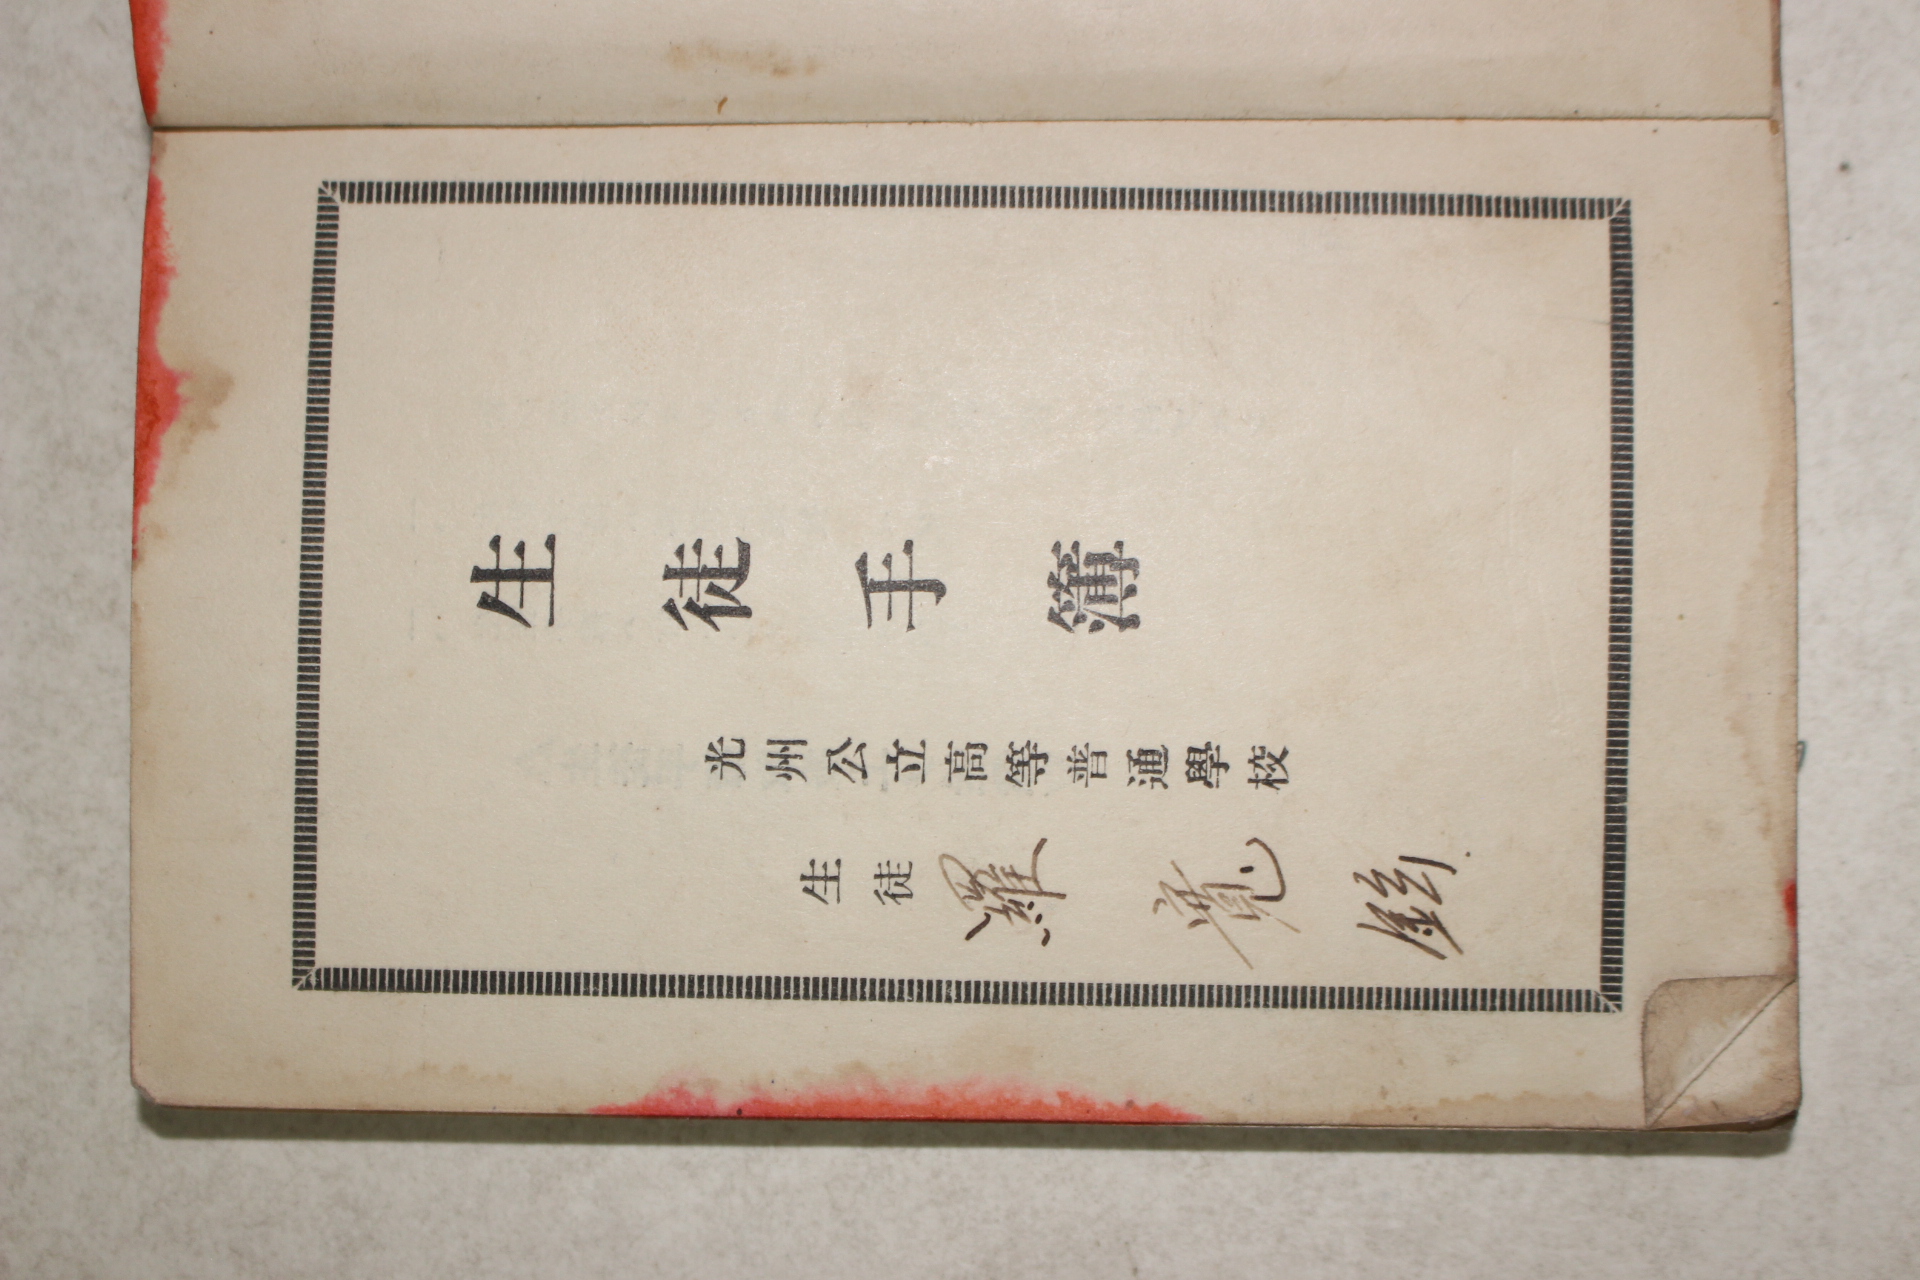 生徒手簿
光州公立高等普通學校
生徒 羅寬鉉